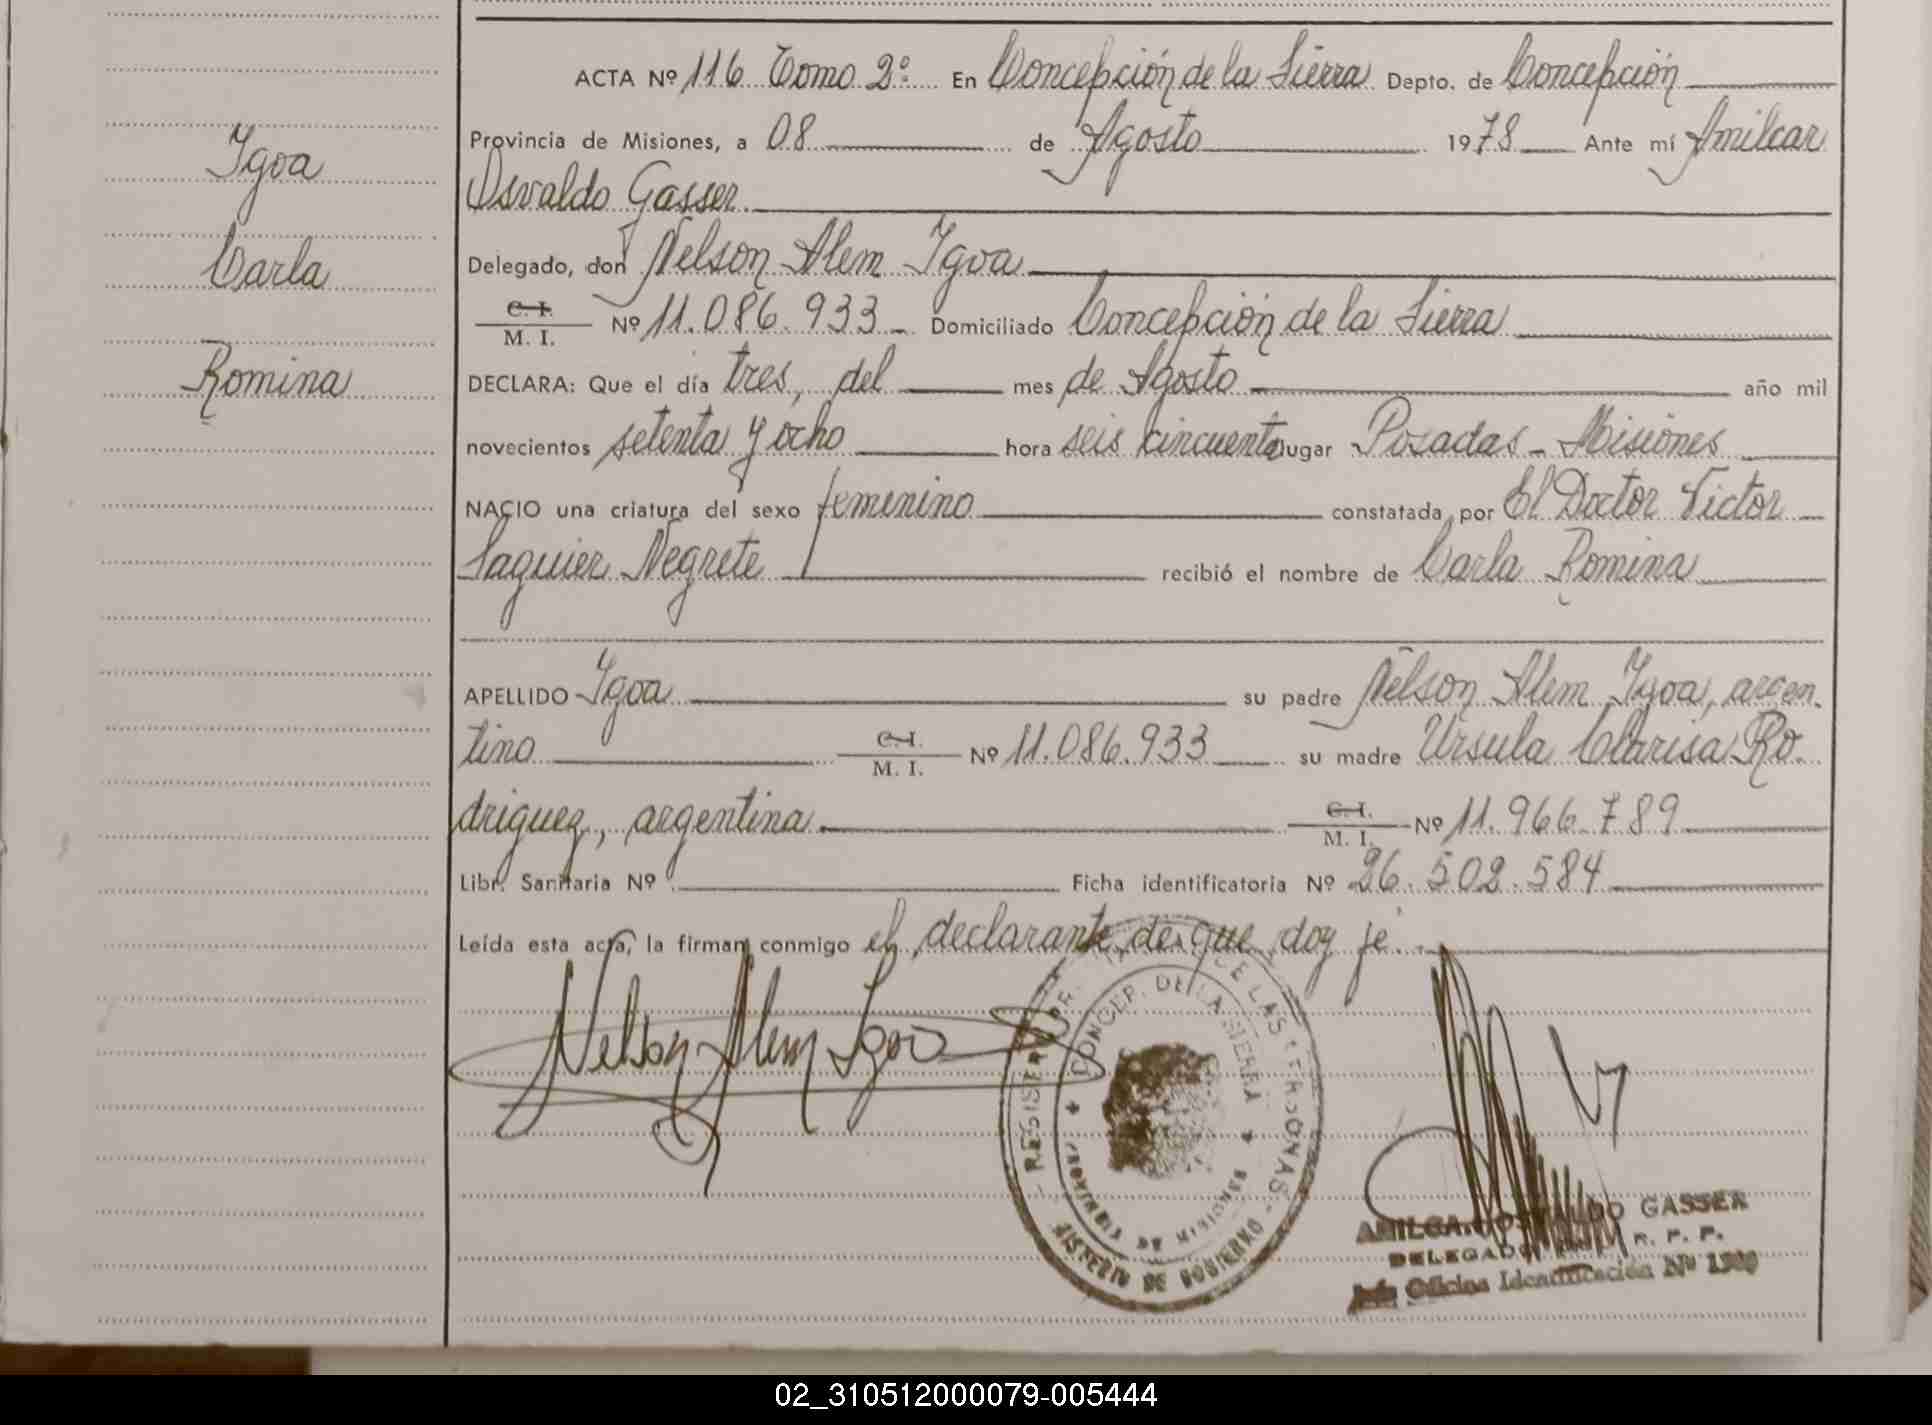 Igoa
Carla
Romina
ACTA Nº 116 Tomo 2º En Concepción de la Sierra Depto. de Concepción
Provincia de Misiones, a 08 de Agosto 1978 Ante mí Amilcar
Osvaldo Gasser
Delegado, don Nelson Alem Igoa
C. I.
M. I. Nº 11.086.933 Domiciliado Concepción de la Sierra
DECLARA: Que el día tres, del mes de Agosto año mil
novecientos setenta y ocho hora seis cincuenta lugar Posadas - Misiones
NACIO una criatura del sexo femenino constatada por El Doctor Victor
Saguier Negrete recibió el nombre de Carla Romina
APELLIDO Igoa su padre Nelson Alem Igoa, argen-
tino C. I. M. I. Nº 11.086.933 su madre Ursula Clarisa Ro-
driguez, argentina C. I. M. I. Nº 11.966.789
Libr. Sanitaria Nº Ficha identificatoria Nº 26.502.584
Leída esta acta, la firman conmigo el declarante de que doy fé.
Nelson Alem Igoa
REGISTRO PR. DE LAS PERSONAS
CONCEP. DE LA SIERRA
PROVINCIA DE MISIONES
MISTERIO DE GOBIERNO
AMILCAR OSVALDO GASSER
DELEGADO R. P. P.
Jefe Oficina Identificación Nº
02_310512000079-005444